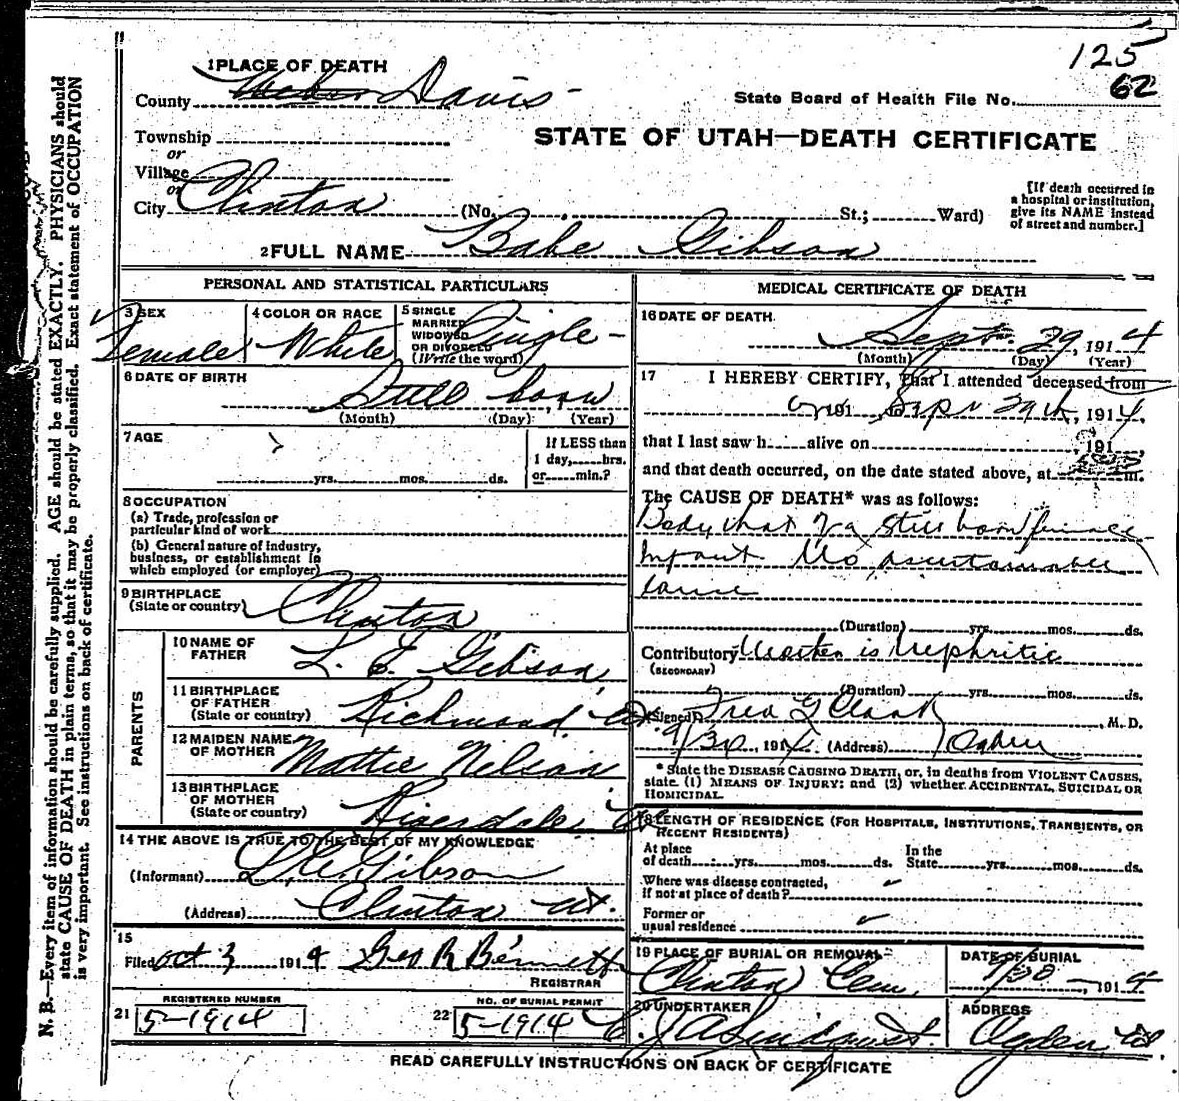 125
62
1 PLACE OF DEATH
County Weber Davis
State Board of Health File No.
Township
STATE OF UTAH—DEATH CERTIFICATE
or
Village
or
City Clinton (No. St.; Ward)
[If death occurred in
a hospital or institution,
give its NAME instead
of street and number.]
2 FULL NAME Babe Gibson
PERSONAL AND STATISTICAL PARTICULARS
3 SEX
Female
4 COLOR OR RACE
White
5 SINGLE
MARRIED
WIDOWED
OR DIVORCED
(Write the word)
Single
6 DATE OF BIRTH
Still born
(Month) (Day) (Year)
7 AGE
yrs. mos. ds.
If LESS than
1 day, hrs.
or min.?
8 OCCUPATION
(a) Trade, profession or
particular kind of work
(b) General nature of industry,
business, or establishment in
which employed (or employer)
9 BIRTHPLACE
(State or country) Clinton
PARENTS
10 NAME OF
FATHER L. E. Gibson
11 BIRTHPLACE
OF FATHER
(State or country) Richmond, Ut
12 MAIDEN NAME
OF MOTHER Mattie Nelson
13 BIRTHPLACE
OF MOTHER
(State or country) Riverdale, Ut
14 THE ABOVE IS TRUE TO THE BEST OF MY KNOWLEDGE
(Informant) L. E. Gibson
(Address) Clinton Ut.
15
Filed Oct 3 1914 Geo R Bennett
REGISTRAR
REGISTERED NUMBER
21 5-1914
NO. OF BURIAL PERMIT
22 5-1914
MEDICAL CERTIFICATE OF DEATH
16 DATE OF DEATH
Sept. 29, 1914
(Month) (Day) (Year)
17 I HEREBY CERTIFY, That I attended deceased from
on 191 Sept 29th, 1914,
that I last saw h alive on , 191 ,
and that death occurred, on the date stated above, at m.
The CAUSE OF DEATH* was as follows:
Body that of a still born female
Infant No ascertainable
cause
(Duration) yrs. mos. ds.
Contributory Mother is Nephritic
(SECONDARY)
(Duration) yrs. mos. ds.
(Signed) Fred G Clark, M. D.
9/30, 1914. (Address) Ogden
* State the DISEASE CAUSING DEATH, or, in deaths from VIOLENT CAUSES,
state (1) MEANS OF INJURY; and (2) whether ACCIDENTAL, SUICIDAL OR
HOMICIDAL.
18 LENGTH OF RESIDENCE (FOR HOSPITALS, INSTITUTIONS, TRANSIENTS, OR
RECENT RESIDENTS)
At place
of death yrs. mos. ds.
In the
State yrs. mos. ds.
Where was disease contracted,
if not at place of death?
Former or
usual residence
19 PLACE OF BURIAL OR REMOVAL
Clinton Cem.
DATE OF BURIAL
9/30, 1914
20 UNDERTAKER
ADDRESS
Ogden, Ut.
READ CAREFULLY INSTRUCTIONS ON BACK OF CERTIFICATE
N. B.—Every item of information should be carefully supplied. AGE should be stated EXACTLY. PHYSICIANS should
state CAUSE OF DEATH in plain terms, so that it may be properly classified. Exact statement of OCCUPATION
is very important. See instructions on back of certificate.